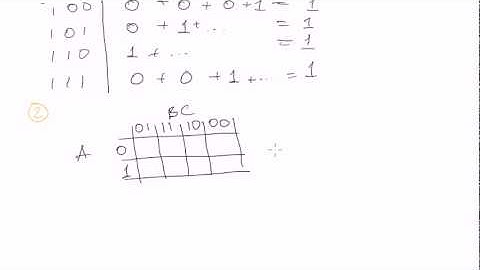 100 | 0 + 0 + 0 + 1 = 1
101 | 0 + 1 + ... = 1
110 | 1 + ... = 1
111 | 0 + 0 + 1 + ... = 1
2
BC
01 11 10 00
A 0
1